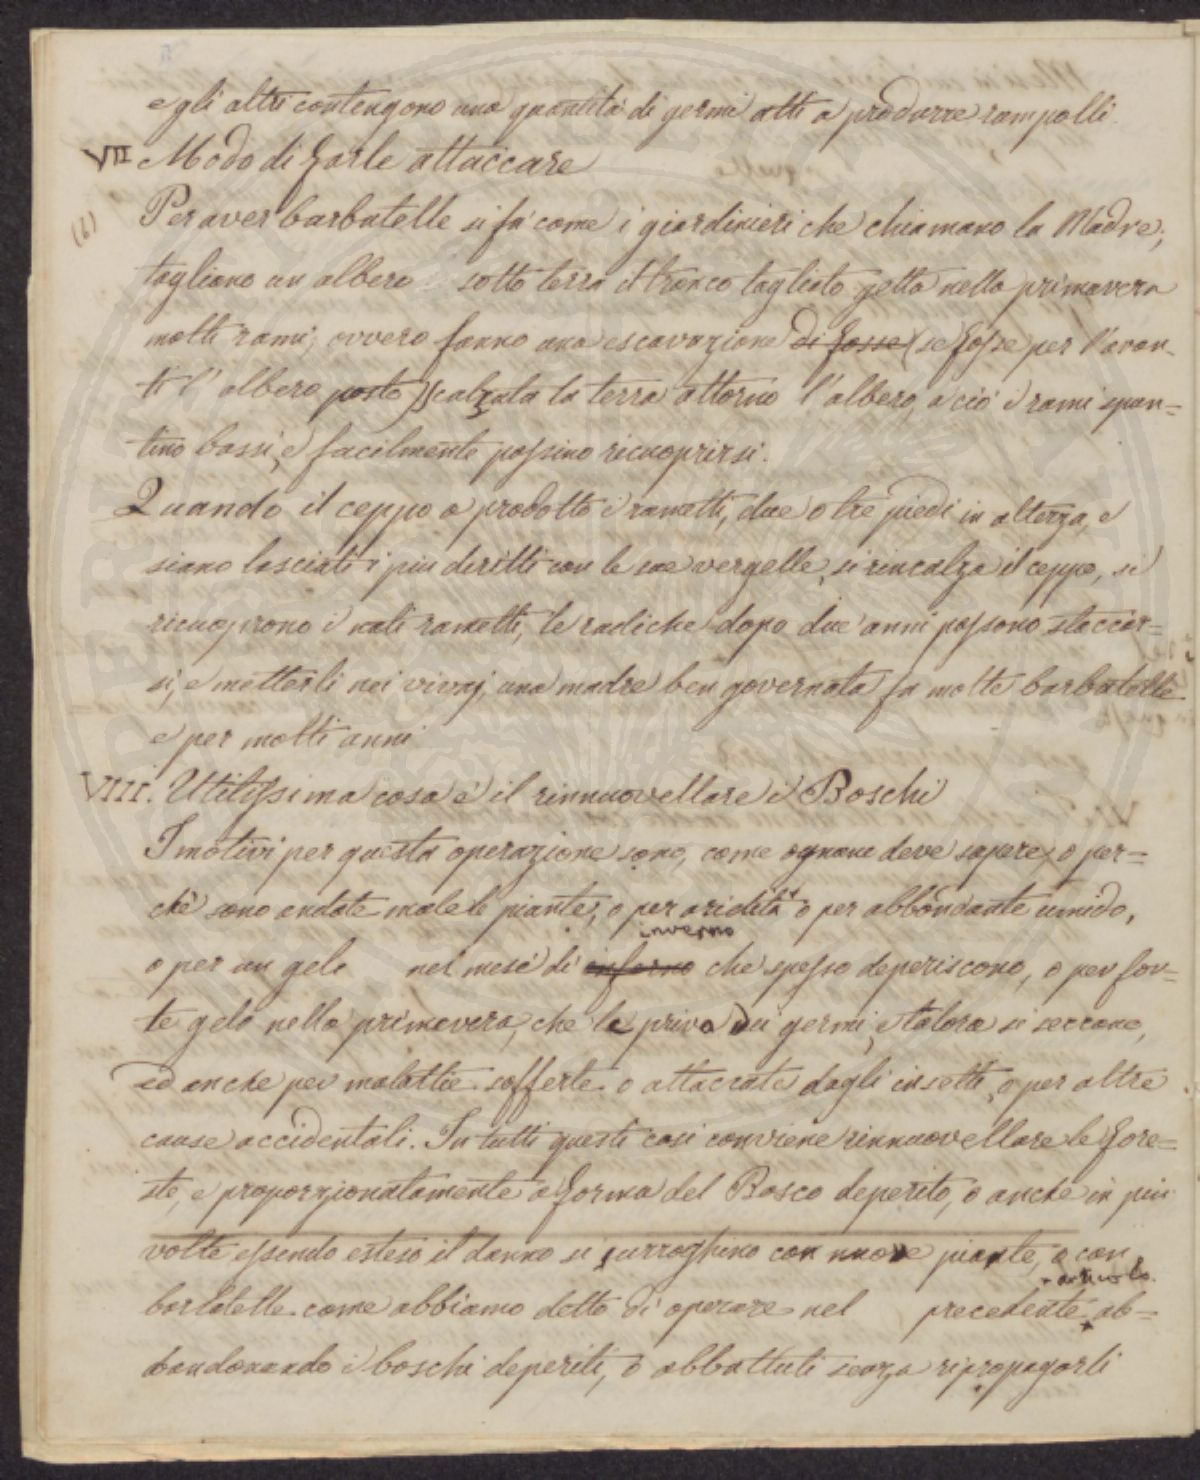 e gli altri contengono una quantità di germi atti a produrre rampolli.
VII Modo di farle attaccare
(6) Per aver barbatelle si fà come i giardinieri che chiamano la Madre;
tagliano un albero sotto terra il tronco tagliato getta nella primavera
molti rami; ovvero fanno una escavazione di fosse (se fosse per l'avan-
ti l'albero posto) scalzata la terra attorno l'albero, a ciò i rami spun=
tino bassi, e facilmente possino ricuoprirsi.
Quando il ceppo a prodotto i rametti, due o tre piedi in altezza, e
siano lasciati i piu diritti con le sue vergelle, si rincalza il ceppo, si
ricuoprono i nati rametti, le radiche dopo due anni possono staccar=
si, e metterli nei vivaj, una madre ben governata fa molte barbatelle
e per molti anni.
VIII. Utilissima cosa è il rinnuovellare i Boschi
I motivi per questa operazione sono, come ognune deve sapere, o per=
chè sono andate male le piante, o per aridità o per abbondante umido,
inverno
o per un gelo nei mesi di inferno che spesso deperiscono, o per for=
te gelo nella primavera, che le priva dei germi, e talora si seccano,
ed anche per malattie sofferte o attaccate dagli insetti, o per altre
cause accidentali. In tutti questi casi conviene rinnuovellare le fore=
ste, e proporzionatamente a forma del Bosco deperito, o anche in piu
volte essendo esteso il danno si surroghino con nuove piante, o con
articolo
barbatelle come abbiamo detto di operare nel precedente ab=
bandonando i boschi deperiti, o abbattuti senza ripropagarli